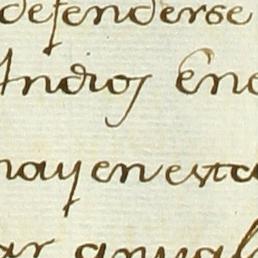 defenderse
Indios Ene
hay en esta
ar anual